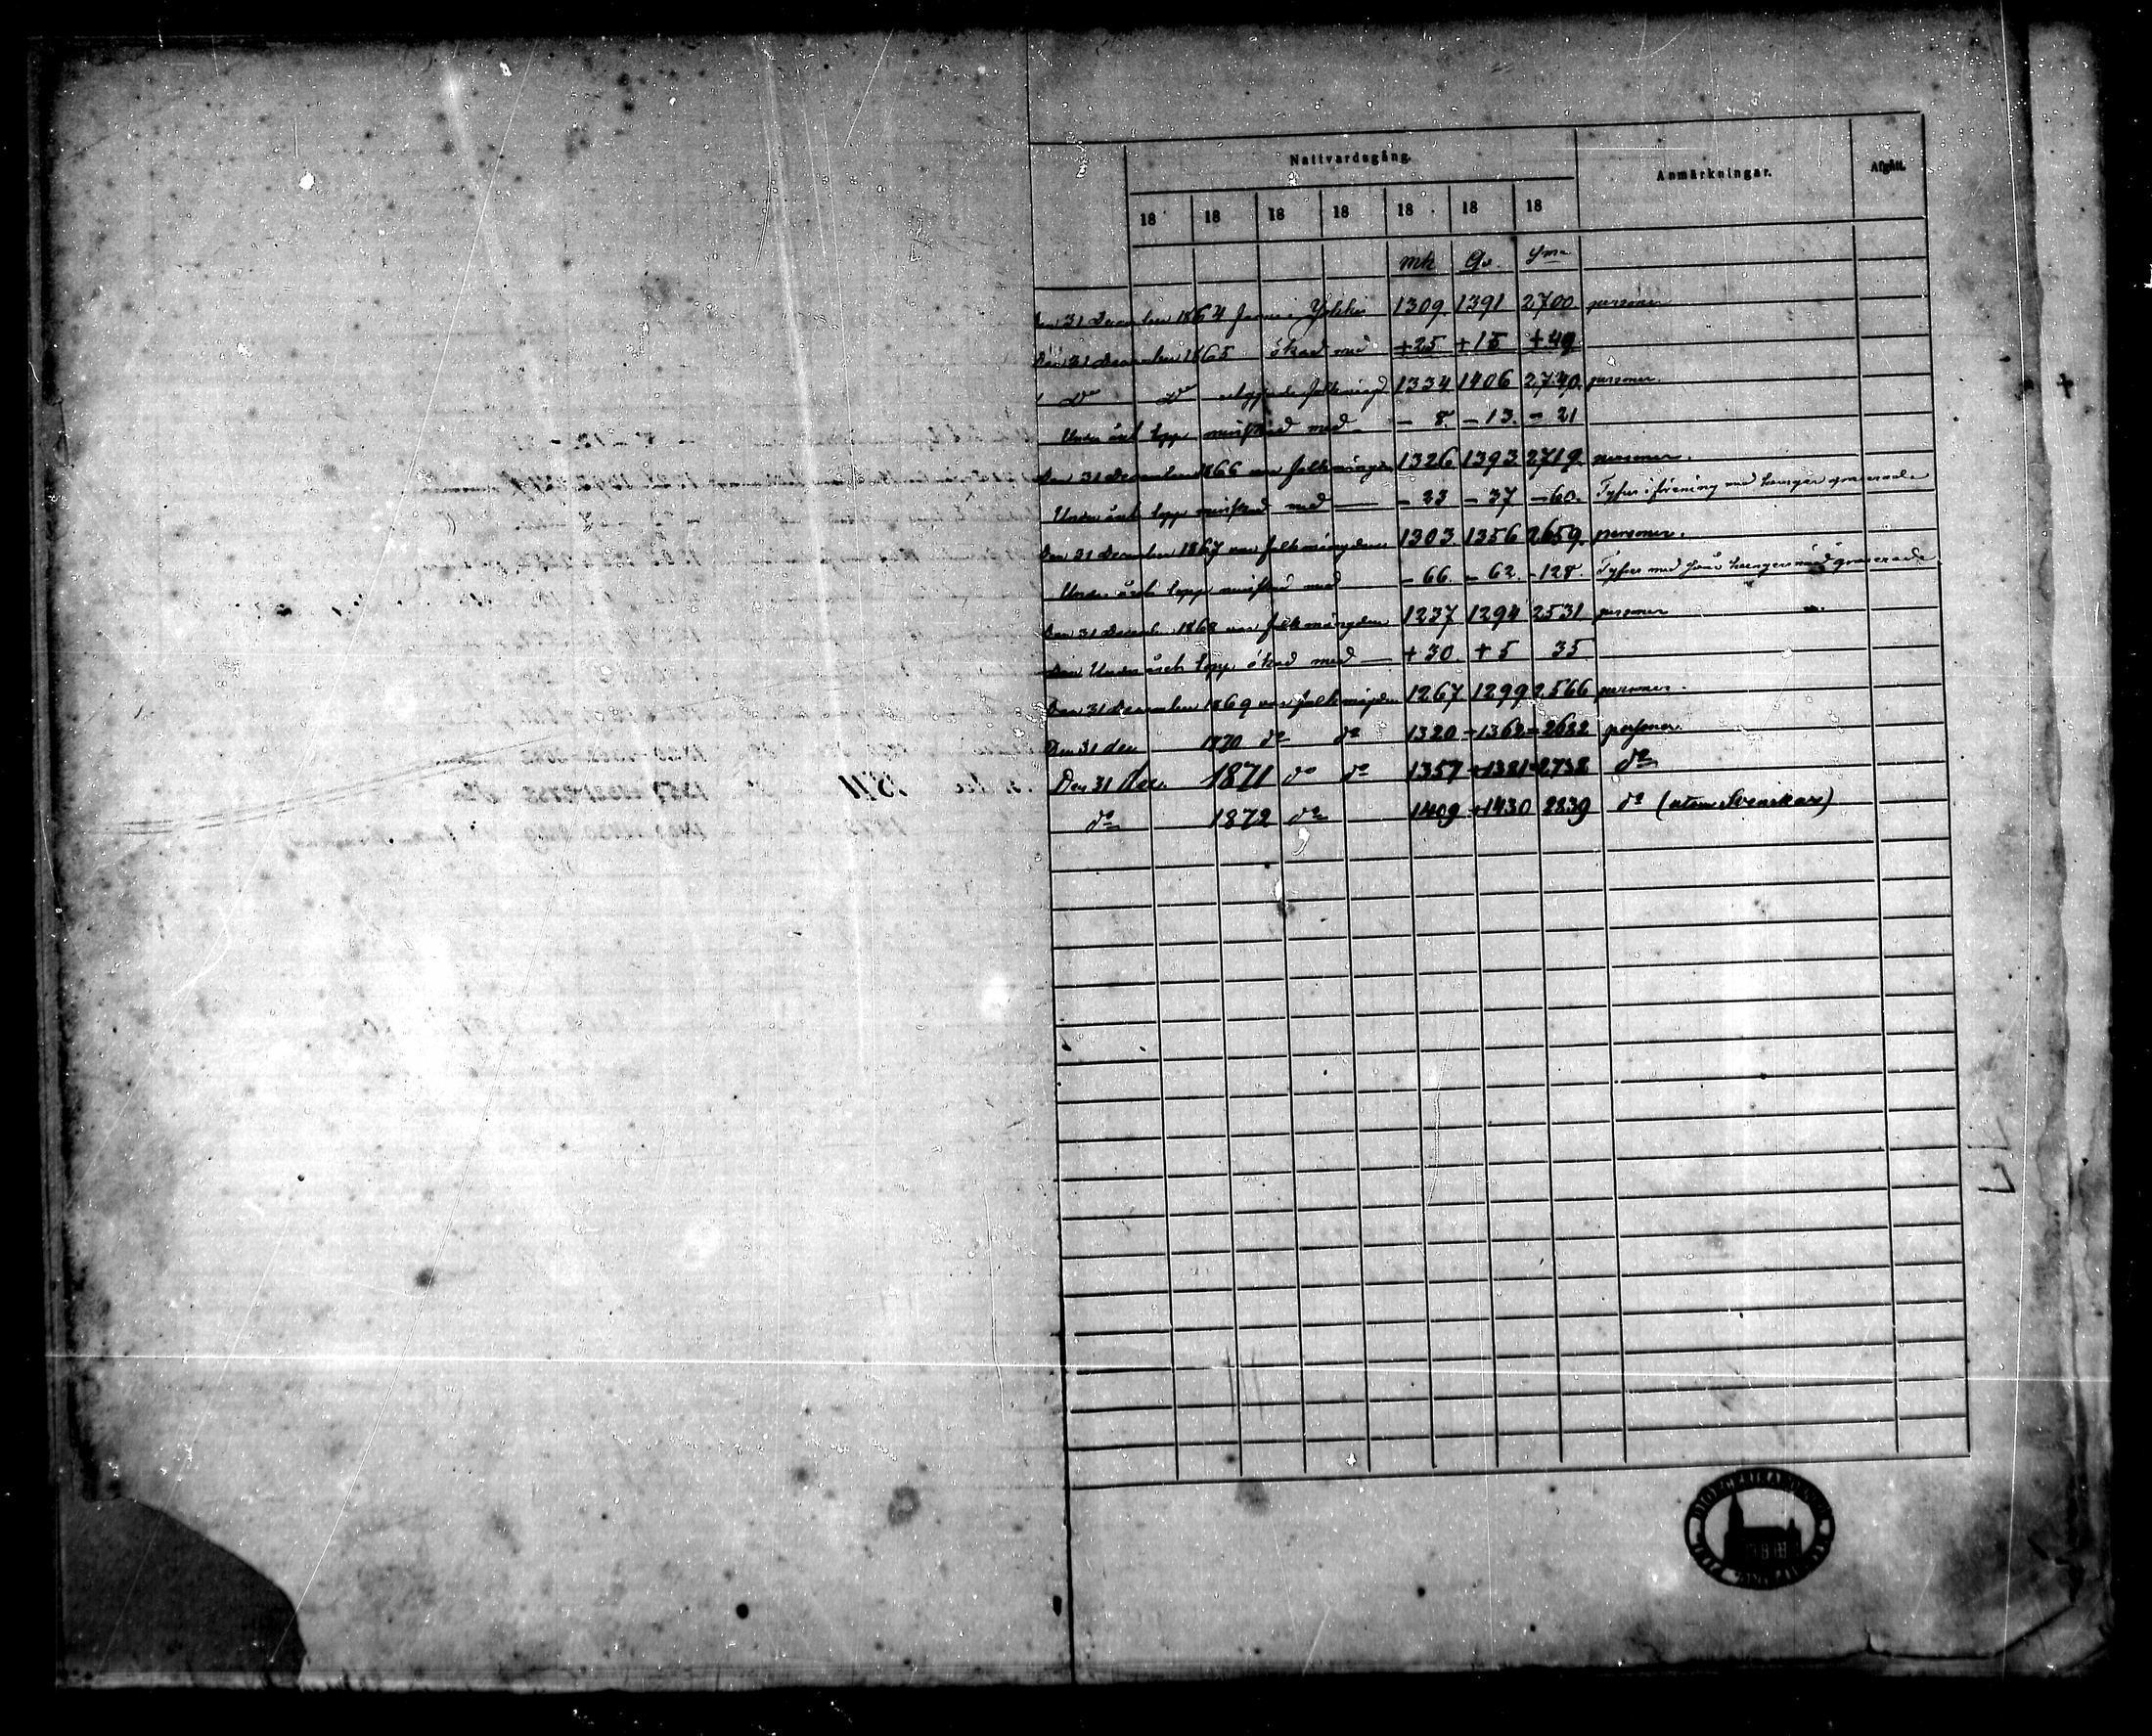 Nattvardsgång.
Anmärkningar.
Afgått.
18 18 18 18 18 18 18
mk Qv. Sma
Den 31 December 1864 fanns i 1309 1391 2700 personer
Den 31 December 1865 ökad med +25 +15 +40
Do Do folkmängd 1334 1406 2740 personer.
Under årets lopp minskad med - 8. - 13. - 21
Den 31 December 1866 var folkmängden 1326 1393 2719 personer.
Under årets lopp minskad med — - 23 - 37 - 60. Tyfus i förening med hunger grasserade
Den 31 December 1867 var folkmängden 1303. 1356 2659. personer.
Under årets lopp minskad med - 66. - 62. - 128. Tyfus med hungersnöd grasserade
Den 31 Decemb. 1868 var folkmängden 1237 1294 2531 personer
Under årets lopp ökad med — + 30. + 5 35
Den 31 December 1869 var folkmängden 1267. 1299 2566 personer.
Den 31 dec 1870 do do 1320 +1362= 2682 personer.
Den 31 dec. 1871 do do 1357 +1381=2738 do
do 1872 do 1409 +1430 2839 do (utom Svenskar)